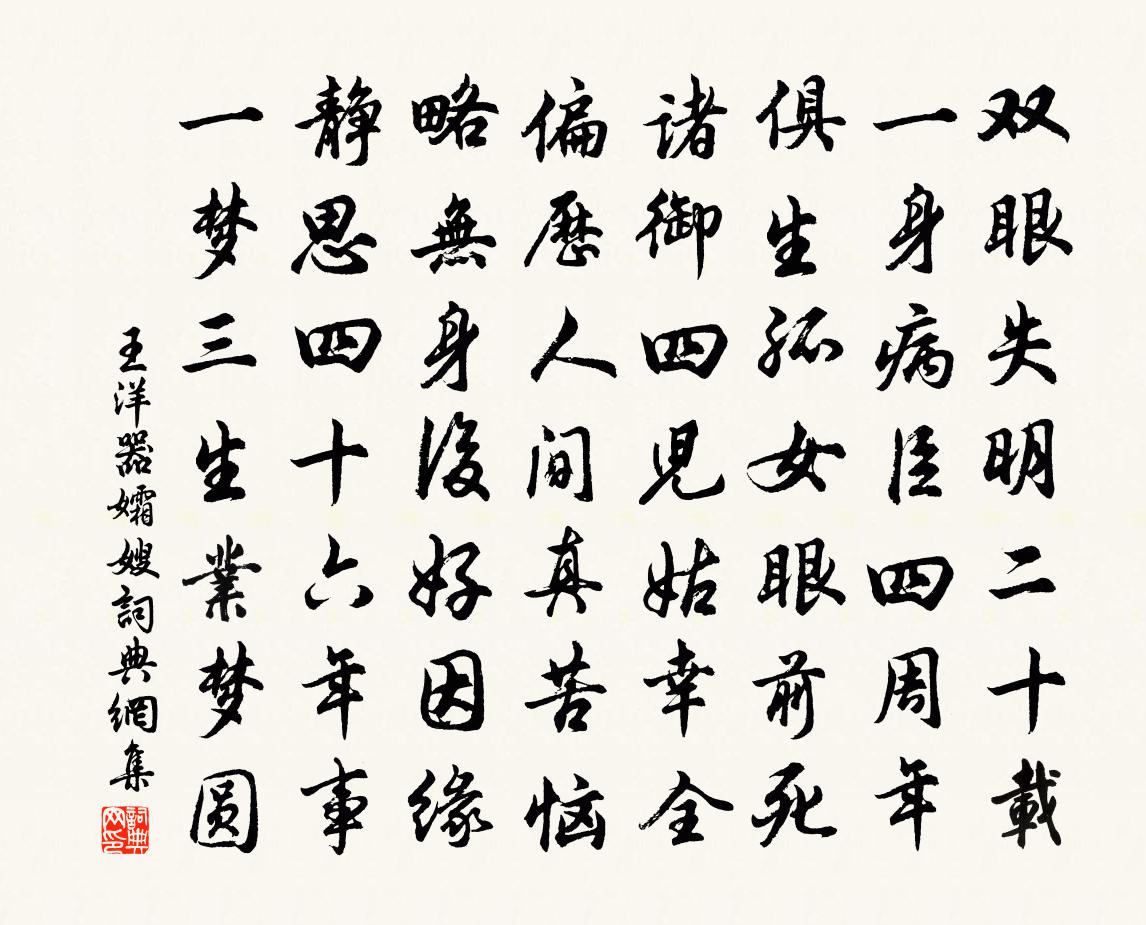 双眼失明二十載
一身病臣四周年
俱生孤女眼前死
诸御四児姑幸全
偏歷人间真苦恼
略無身後好因缘
静思四十六年事
一梦三生業梦圆
王洋器孀嫂詞典網集
詞典网印